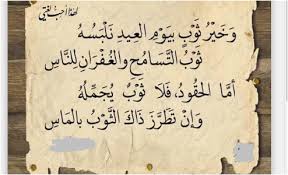 لهذا أحببت لغتي
وَخَيْرُ ثَوْبٍ بِيَوْمِ العِيدِ نَلْبَسُهُ
ثَوْبُ التَّسَامُحِ وَالغُفْرَانِ لِلنَّاسِ
أمَّا الحَقُودُ، فَلَا ثَوْبٌ يُجَمِّلُهُ
وَإِنْ تَطَرَّزَ ذَاكَ الثَّوْبُ بِالمَاسِ